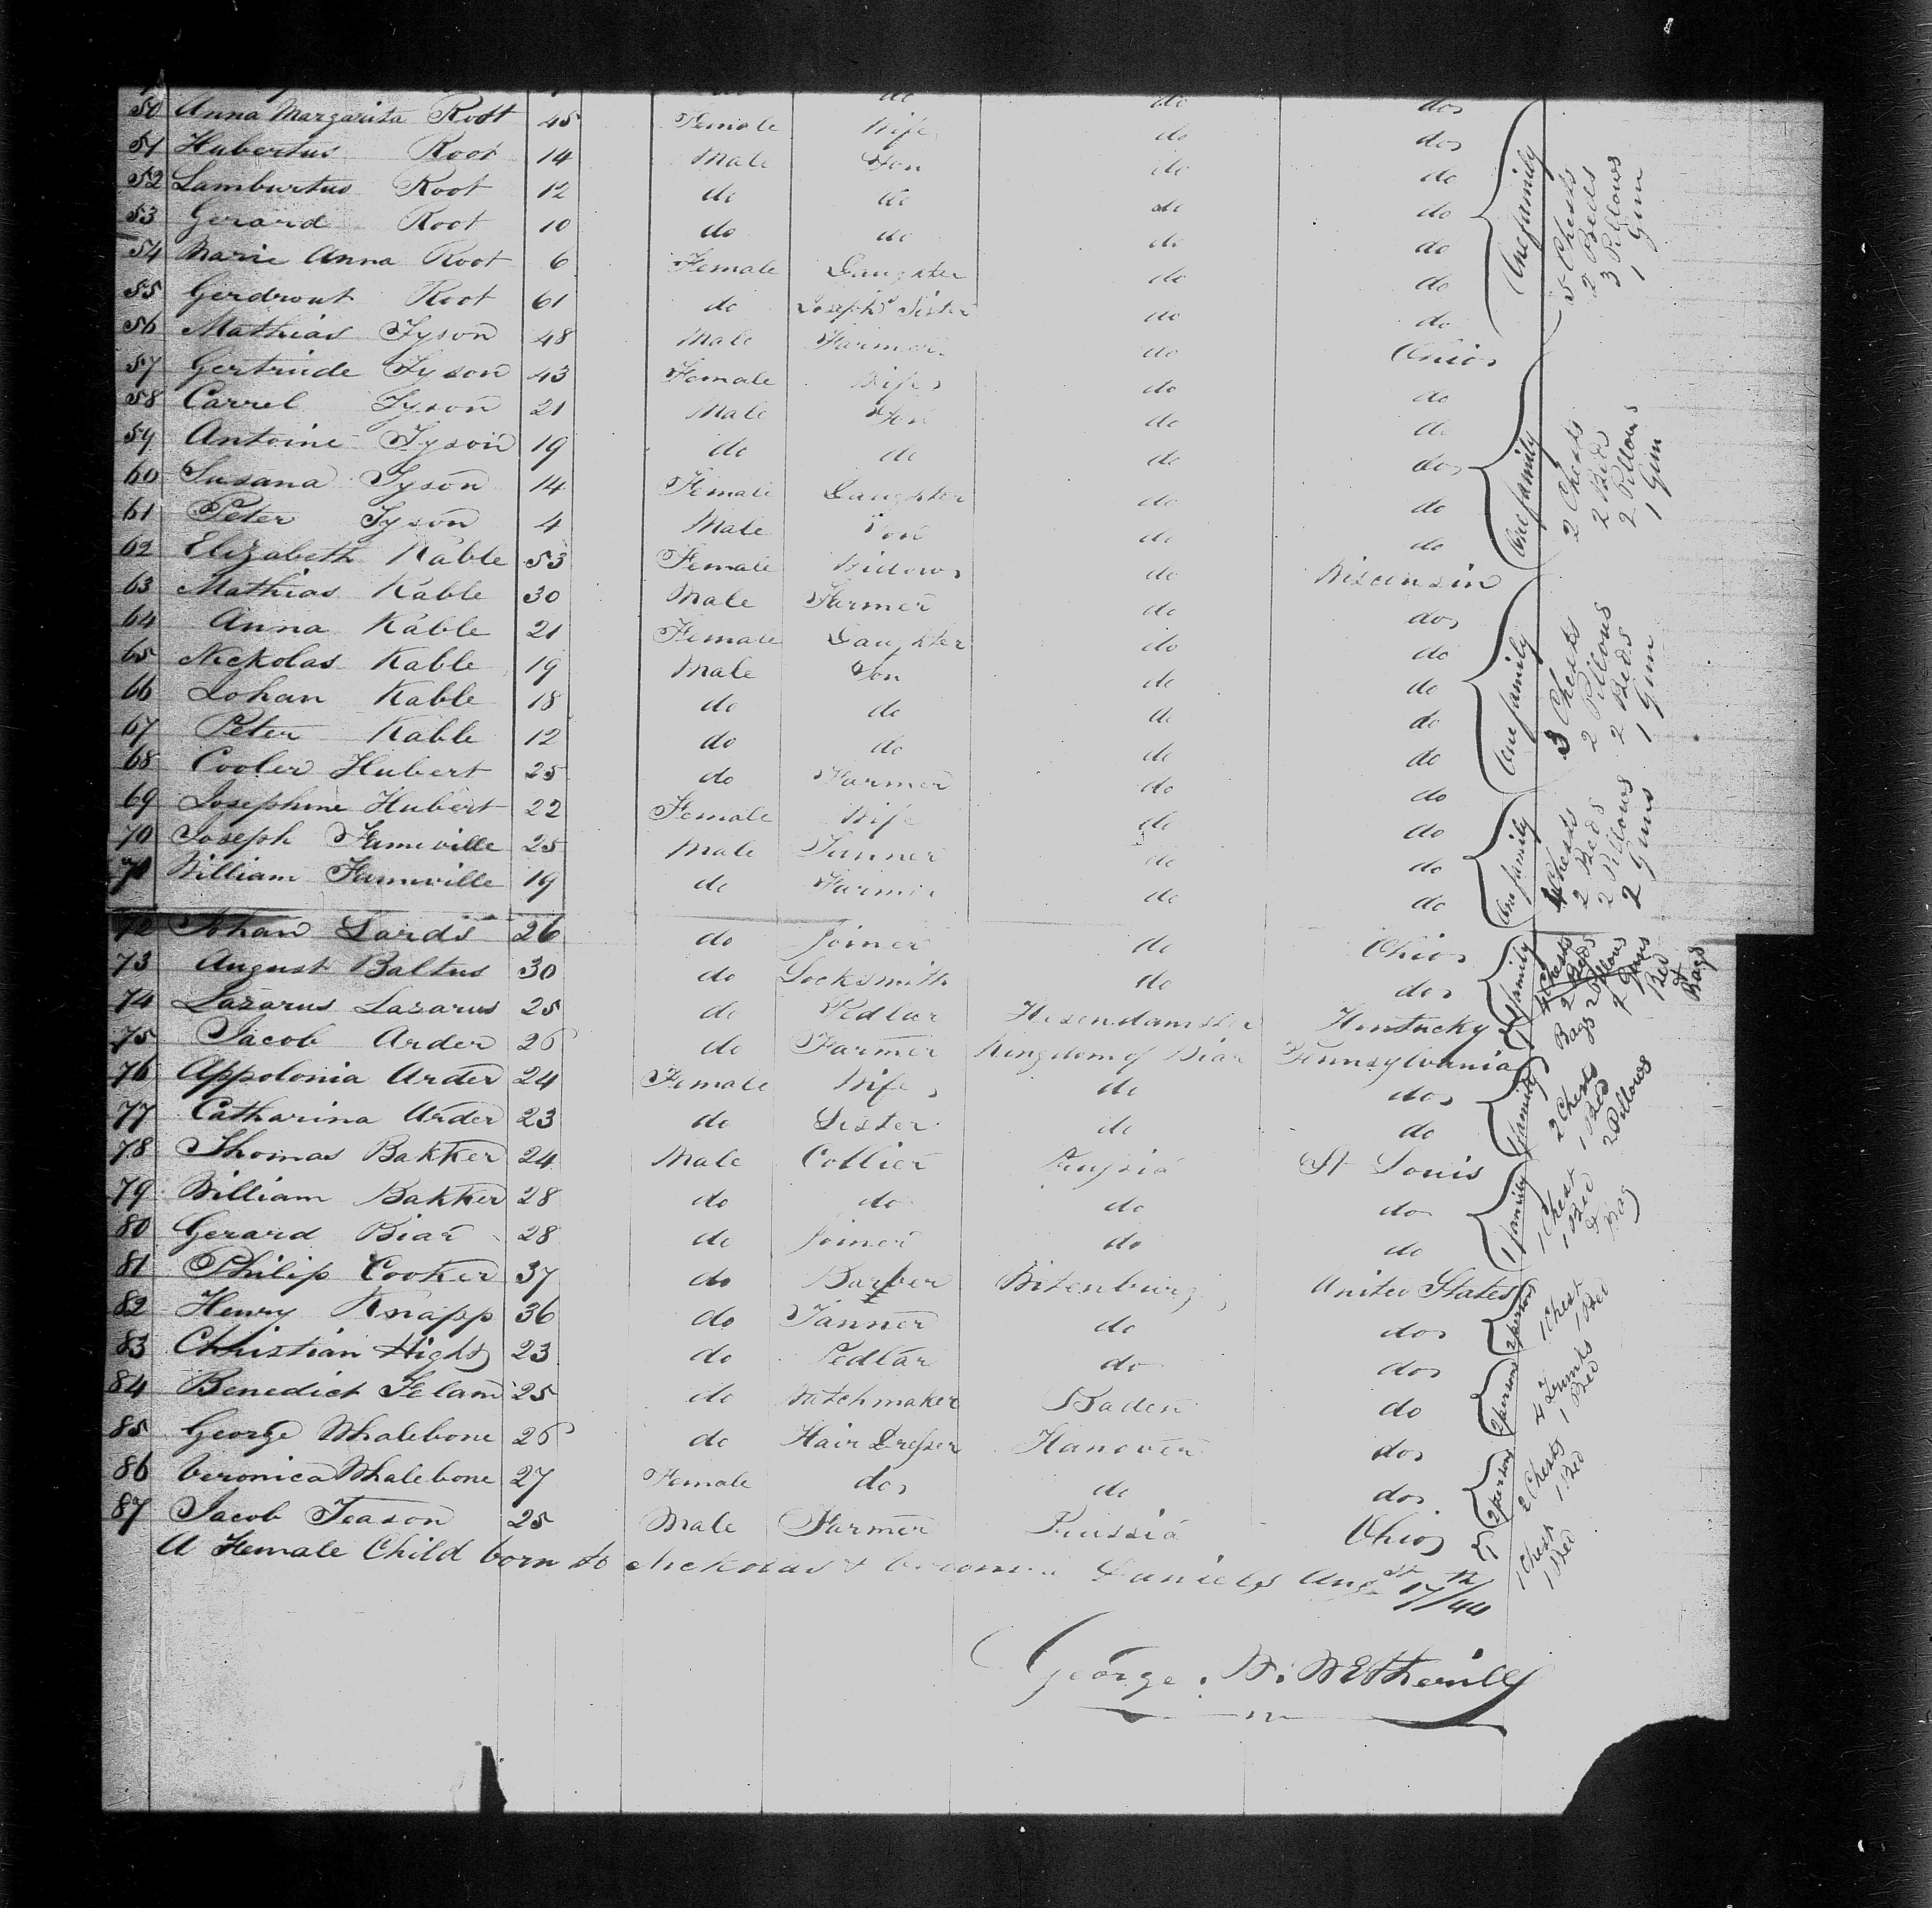 do do do
50 Anna Margarita Root 45 Female Wife do do
51 Hubertus Root 14 Male Son do do
52 Lamburtus Root 12 do do do do
53 Gerard Root 10 do do do do
54 Marie Anna Root 6 Female Daughter do do
55 Gerdrout Root 61 do Joseph's Sister do do
56 Mathias Tyson 48 Male Farmer do Ohio
57 Gertrude Tyson 43 Female Wife do do
58 Carrel Tyson 21 Male Son do do
59 Antoine Tyson 19 do do do do
60 Susana Tyson 14 Female Daughter do do
61 Peter Tyson 4 Male Son do do
62 Elizabeth Kable 53 Female Widow do Wisconsin
63 Mathias Kable 30 Male Farmer do do
64 Anna Kable 21 Female Daughter do do
65 Nickolas Kable 19 Male Son do do
66 Johan Kable 18 do do do do
67 Peter Kable 12 do do do do
68 Cooler Hubert 25 do Farmer do do
69 Josephine Hubert 22 Female Wife do do
70 Joseph 25 Male Tanner do do
71 William 19 do Farmer do do
72 Johan Sards 26 do Joiner do Ohio
73 August Baltus 30 do Locksmith do do
74 Lazarus Lazarus 25 do Pedlar Kentucky
75 Jacob Arder 26 do Farmer Kingdom of Biar Pennsylvania
76 Appolonia Arder 24 Female Wife do do
77 Catharina Arder 23 do Sister do do
78 Thomas Bakker 24 Male Collier Prussia St Louis
79 William Bakker 28 do do do do
80 Gerard Biar 28 do Joiner do do
81 Philip Cooker 37 do Barber Witenburg United States
82 Henry Knapp 36 do Tanner do do
83 Christian High 23 do Pedlar do do
84 Benedict 25 do Watchmaker Baden do
85 George Whalebone 26 do Hair Dresser Hanover do
86 Veronica Whalebone 27 Female do do do
87 Jacob Teason 25 Male Farmer Prussia Ohio
A Female Child born to Nickolas & Daniels Augst 17th/44
George. W. Wetherill
One family
5 Chests
2 Beds
3 Pillows
1 Gun
One family
2 Chests
2 Beds
2 Pillows
1 Gun
One family
3 Chests
2 Pillows
2 Beds
1 Gun
One family
4 Chests
2 Beds
2 Pillows
2 Guns
1 family
4 Chests
2 Beds
2 Pillows
2 Guns
Bed
&
Bags
Bags
1 family
2 Chests
1 Bed
2 Pillows
1 family
1 Chest
1 Bed
& Bag
2 persons
1 Chest
1 Bed
2 persons
4 Trunks
1 Bed
2 persons
2 Chests
1 Bed
1 Chest
1 Bed